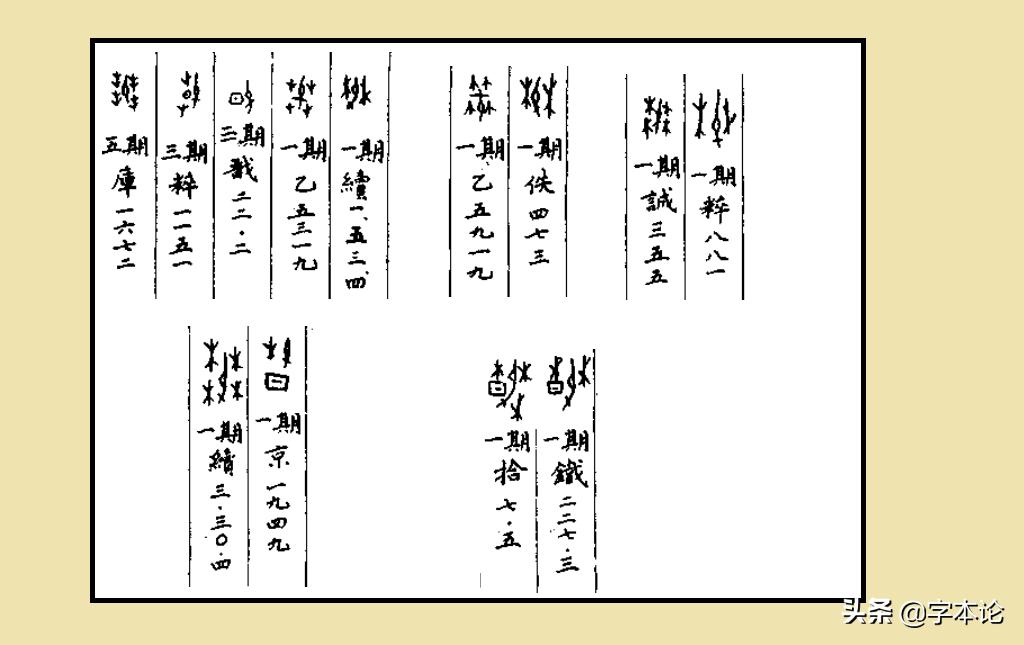 一期粹八八一
一期誠三五五
一期佚四七三
一期乙五九一九
一期續一、五三、四
一期乙五三一九
三期戩二二·二
三期粹一一五一
五期庫一六七二
一期鐵二二七·三
一期拾七·五
一期京一九四九
一期續三·三〇·四
头条 @字本论